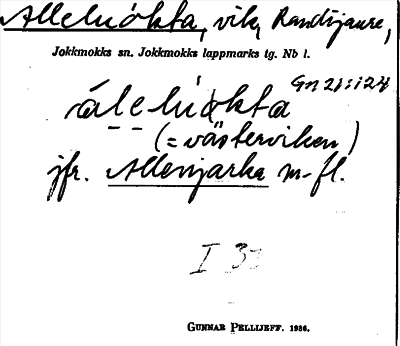 Alleluokta, vik, Randijaure,
Jokkmokks sn. Jokkmokks lappmarks tg. Nb l.
Gn 21:124
áleluokta
(= västerviken)
jfr. Allenjarka m. fl.
I
Gunnar Pellijeff. 1936.